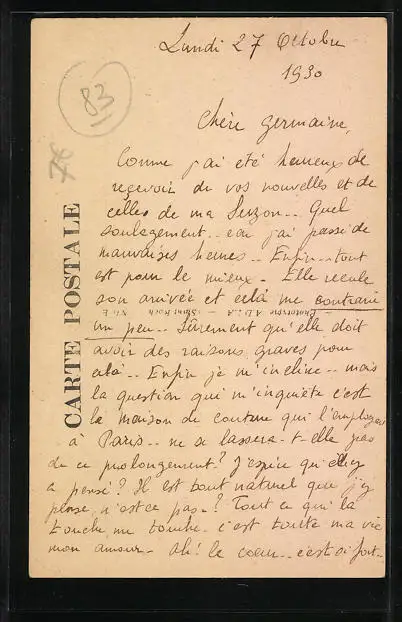 Lundi 27 Octobre
1930
83
76
CARTE POSTALE
Chère Germaine,
Comme j'ai été heureux de
recevoir de vos nouvelles et de
celles de ma Suzon.. Quel
soulagement.. car j'ai passé de
mauvaises heures.. Enfin.. tout
est pour le mieux. Elle recule
son arrivée et cela me contrarie
un peu.. Sûrement qu'elle doit
avoir des raisons graves pour
cela.. Enfin je m'incline.. mais
la question qui m'inquiète c'est
la maison de couture qui l'emploie
à Paris.. ne se lassera-t-elle pas
de ce prolongement? J'espère qu'elle y
a pensé? Il est tout naturel que j'y
pense, n'est ce pas..? Tout ce qui la
touche me touche.. c'est toute ma vie
mon amour.. Ah! le coeur.. c'est si fort..